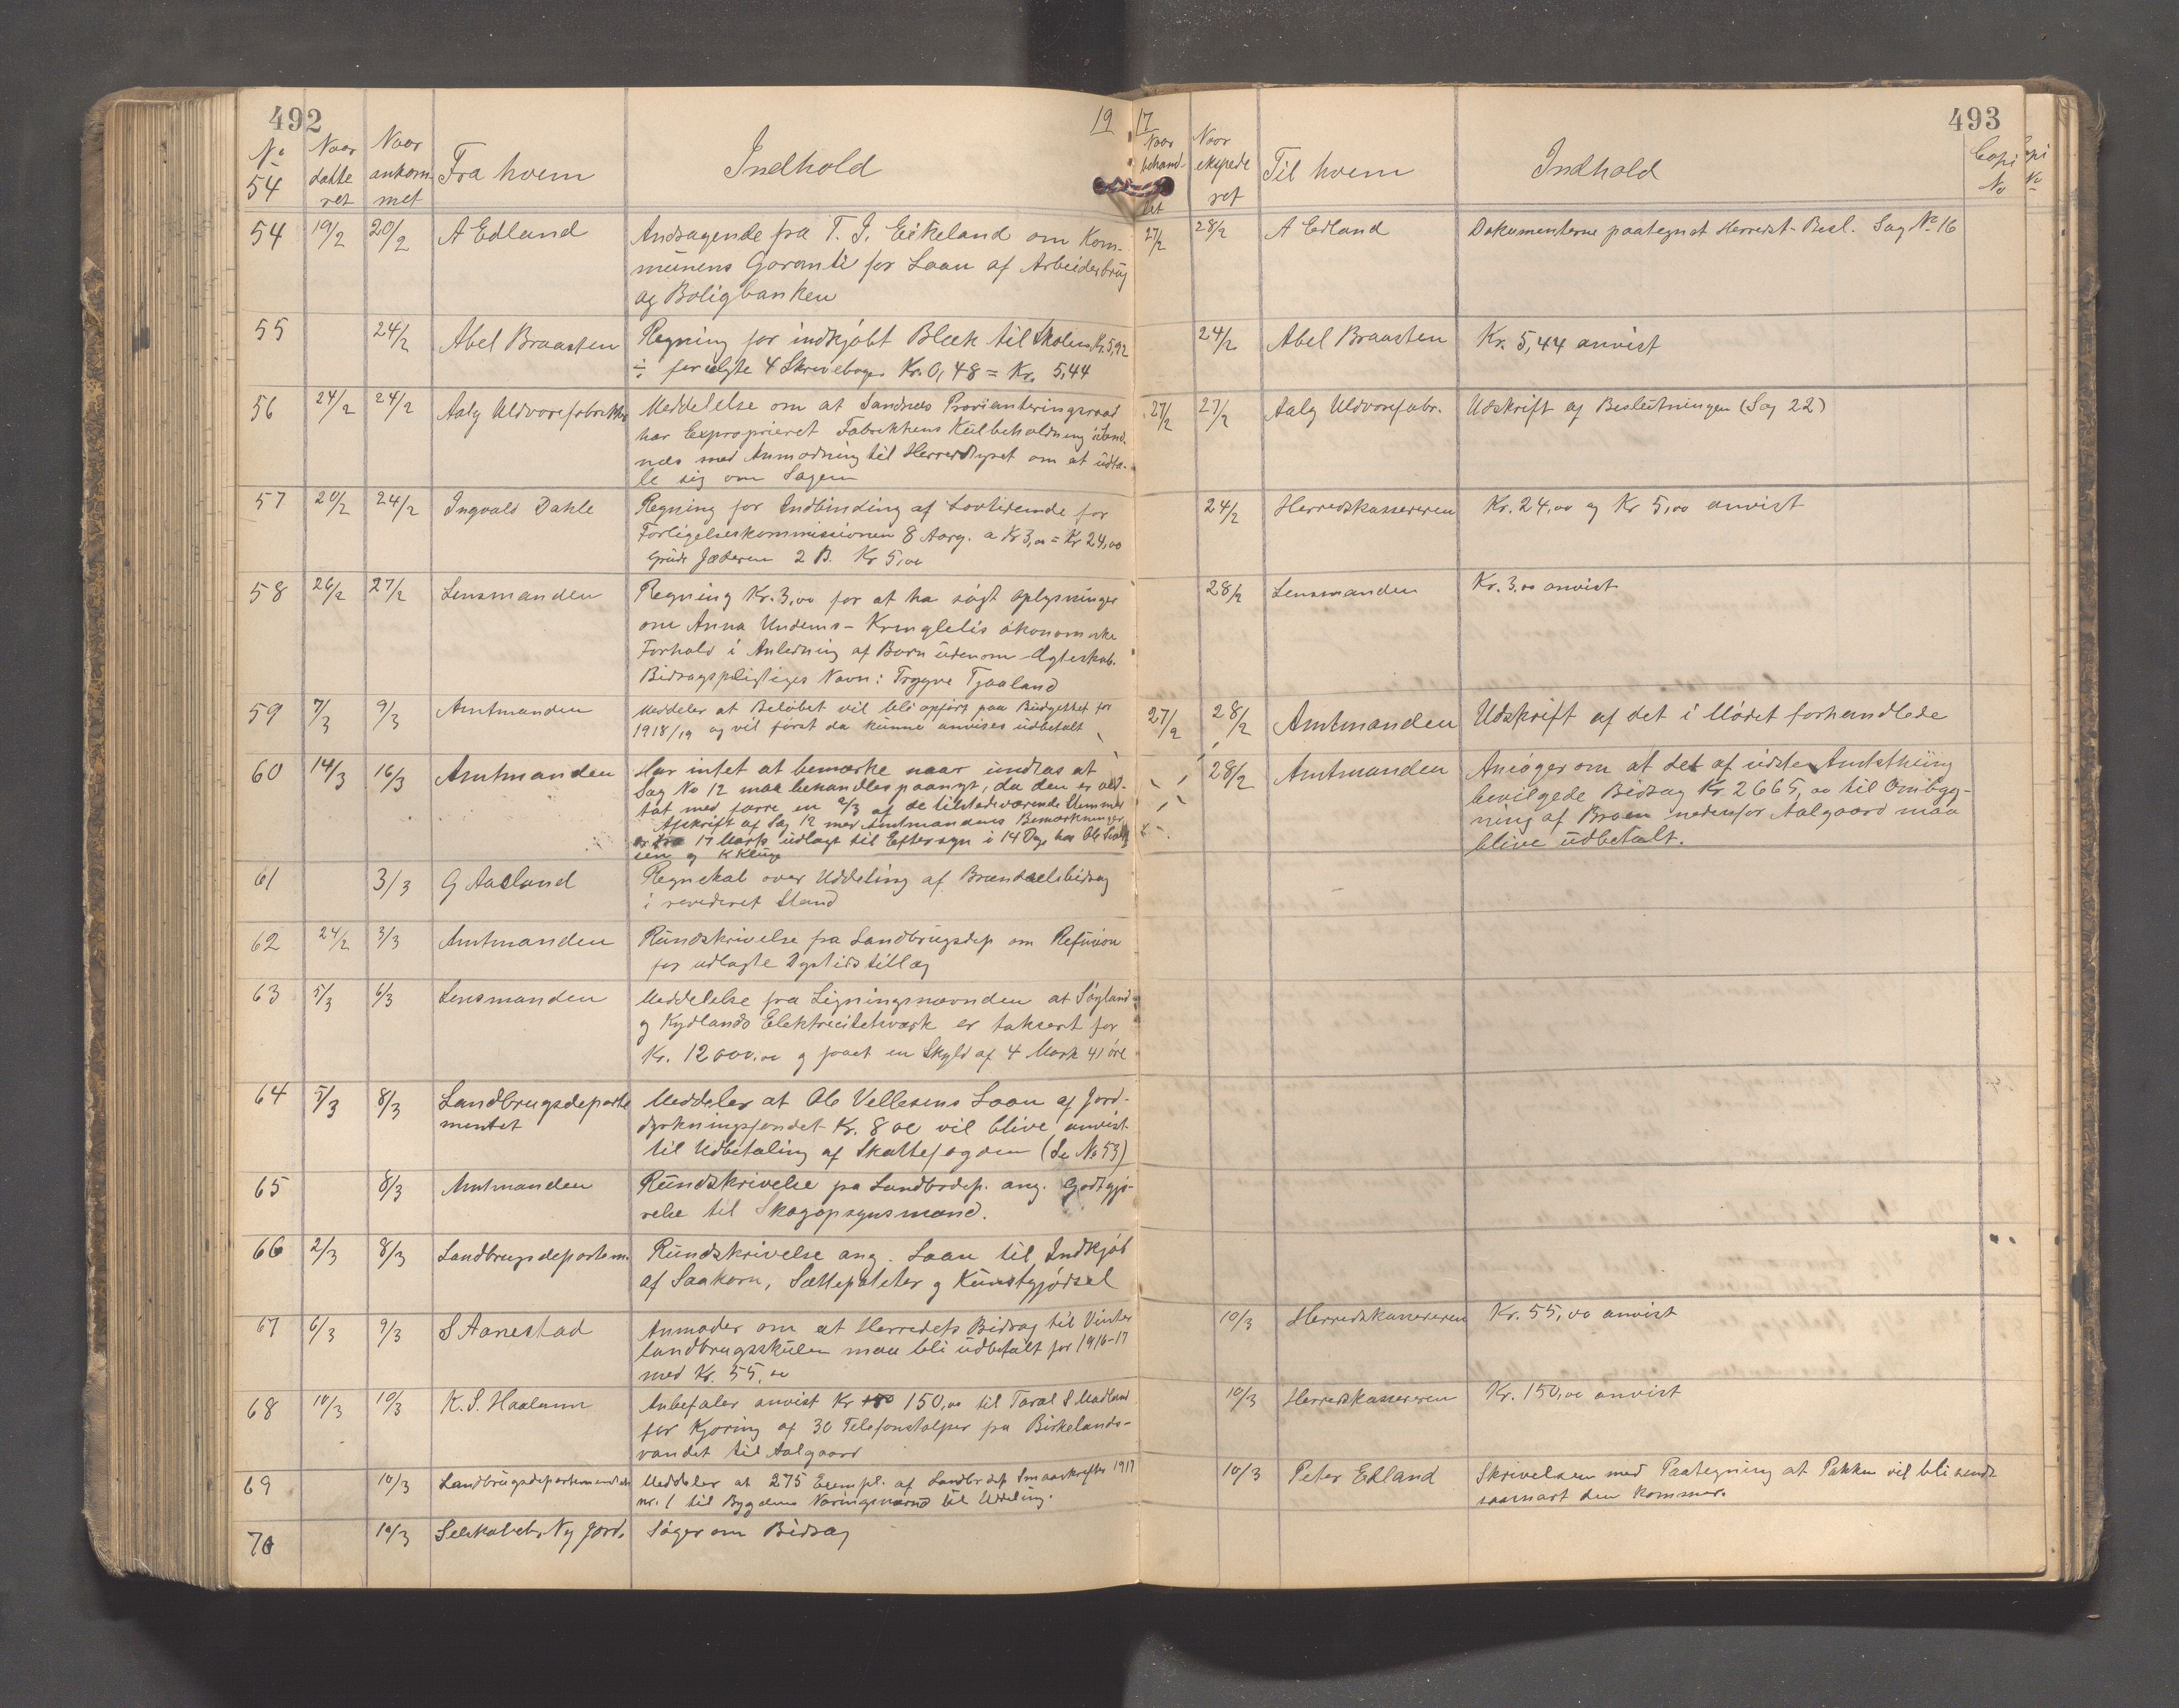 492
19
No
54
Naar
datte
ret
Naar
ankom
met
Fra hvem
Indhold
54 19/2 20/2 A Edland Andragende fra T. I. Eikeland om Kom-
munens Garanti for Laan af Arbeiderbrug
og Boligbanken
55 24/2 Abel Braasten Regning for indkjøbt Blæk til Skolen Kr. 5,92
÷ for solgte 4 Skrivebøger Kr. 0,48 = Kr. 5,44
56 24/2 24/2 Aalg Uldvarefabrikker Meddelelse om at Sandnes Provianteringsraad
har Exproprieret Fabrikkens Kulbeholdning i Sand-
nes med Anmodning til Herredstyret om at udta-
le sig om Sagen
57 20/2 24/2 Ingvald Dahle Regning for Indbinding af Lovtidende for
Forligelseskommissionen 8 Aarg. a Kr 3,00 = Kr 24,00
Jæderen 2 B. Kr 5,00
58 26/2 27/2 Lensmanden Regning Kr. 3,00 for at ha søgt oplysninger
om Anna Undems - Kringlelis økonomiske
Forhold i Anledning af Barn udenom Ægteskab.
Bidragspligtiges Navn: Trygve Tjaaland
59 7/3 9/3 Amtmanden Meddeler at Beløbet vil bli opført paa Budgettet for
1918/19 og vil først da kunne anvises udbetalt
60 14/3 16/3 Amtmanden Har intet at bemærke naar undtas at
Sag No 12 maa behandles paanyt, da den er ved-
tat med færre en 2/3 af de tilstedeværende Stemmer
Afskrift af Sag 12 med Amtmandens Bemærkninger
er 17 Marts udlagt til Eftersyn i 14 Dage hos Ole
sen og K Kluge
61 3/3 G Aasland Regnskab over Uddeling af Brændselsbidrag
i revideret Stand
62 24/2 3/3 Amtmanden Rundskrivelse fra Landbrugsdep om Refusion
for udlagte Dyrtidstillæg
63 5/3 6/3 Lensmanden Meddelelse fra Ligningsnævnden at Søyland
og Kydlands Elektricitetsværk er taksert for
Kr. 12000,00 og faaet en Skyld af 4 Mark 41 øre
64 5/3 8/3 Landbrugsdeparte
mentet Meddeler at Ole Vellesens Laan af Jord-
dyrkningsfondet Kr. 800 vil blive anvist
til Udbetaling af Skattefogden (Se No 53)
65 8/3 Amtmanden Rundskrivelse fra Landbrdep. ang. Godtgjø-
relse til Skogopsynsmænd.
66 2/3 8/3 Landbrugsdepartem. Rundskrivelse ang. Laan til Indkjøb
af Saakorn, Sættepoteter og Kunstgjødsel
67 6/3 9/3 S Aanestad Anmoder om at Herredets Bidrag til Vinter
landbrugsskulen maa bli udbetalt for 1916-17
med Kr. 55,00
68 10/3 10/3 K. S. Haaland Anbefaler anvist Kr 150,00 til Taral S Madland
for Kjøring af 30 Telefonstolper fra Birkelands-
vandet til Aalgaard
69 10/3 Landbrugsdepartementet Meddeler at 275 Exempl. af Landbrdep Smaaskrifter 1917
nr. 1 til Bygdens Næringsnævnd til Uddeling.
70 10/3 Selskabet Ny Jord. Søger om Bidrag
493
17
Naar
behand-
let
Naar
ekspede
ret
Til hvem
Indhold
Copi
No
27/2 28/2 A Edland Dokumenterne paategnet Herredst. Besl. Sag No 16
24/2 Abel Braasten Kr. 5,44 anvist
27/2 27/2 Aalg Uldvarefabr. Udskrift af Beslutningen (Sag 22)
24/2 Herredskassereren Kr. 24,00 og Kr 5,00 anvist
28/2 Lensmanden Kr. 3,00 anvist
27/2 28/2 Amtmanden Udskrift af det i Mødet forhandlede
28/2 Amtmanden Ansøger om at det af sidste Amtsthing
bevilgede Bidrag Kr. 2665,00 til Ombyg-
ning af Broen nedenfor Aalgaard maa
blive udbetalt.
10/3 Herredskassereren Kr. 55,00 anvist
10/3 Herredskassereren Kr. 150,00 anvist
10/3 Peter Edland Skrivelsen med Paategning at Pakken vil bli sendt
saasnart den kommer.